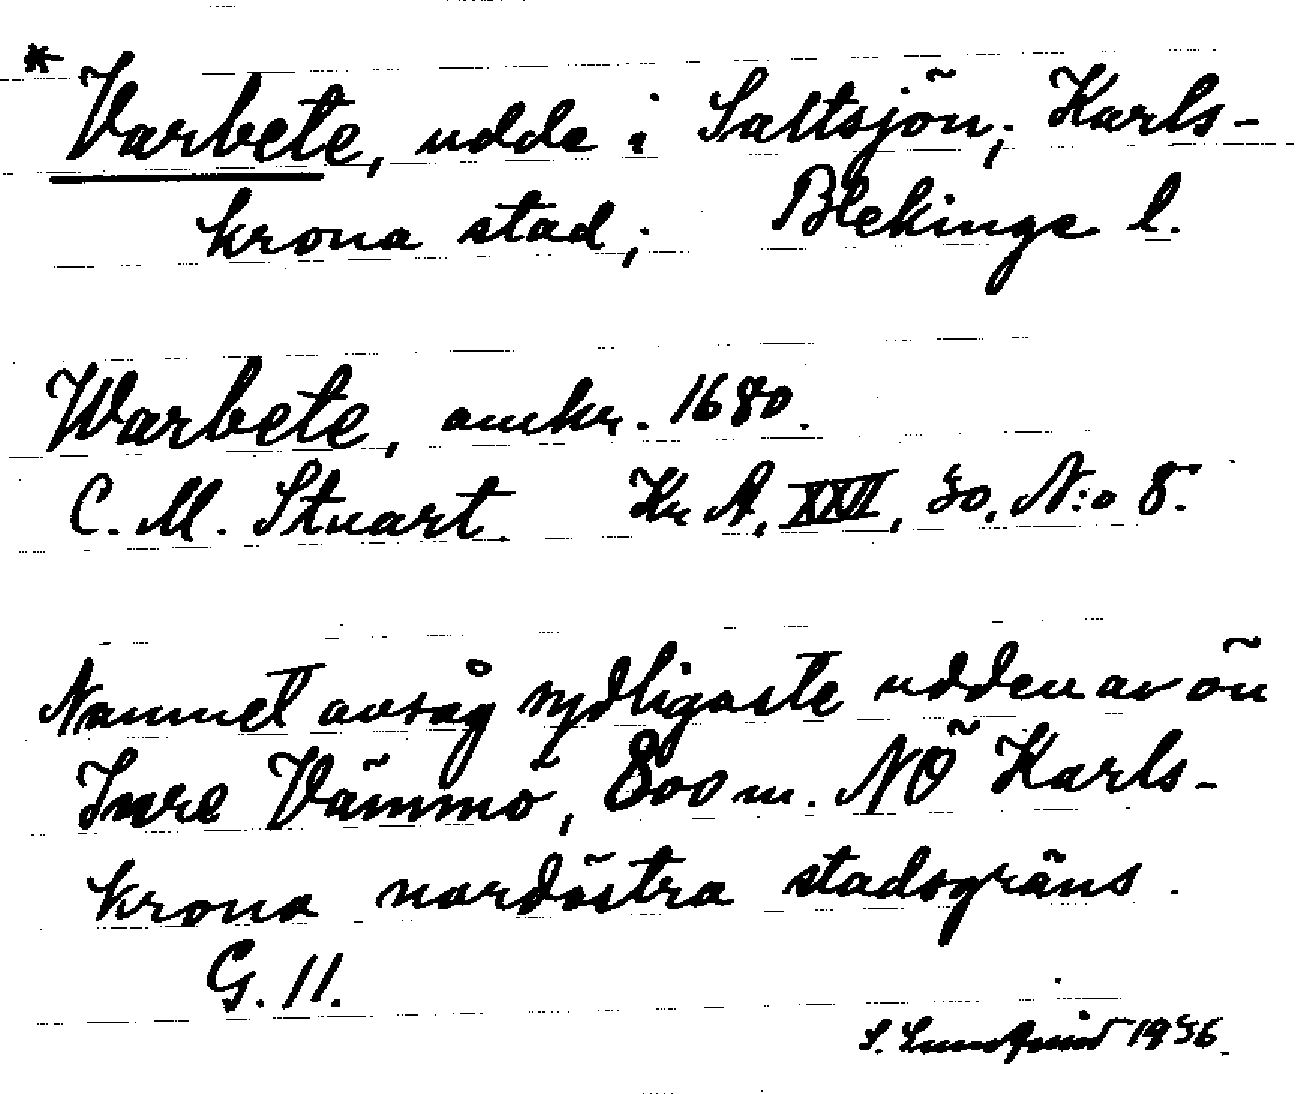 * Varbete, udde i Saltsjön; Karls-
krona stad; Blekinge l.
Warbete, omkr. 1680.
C. M. Stuart. Kr A, XXVI, 30, N:o 8.
Namnet avsåg sydligaste udden av ön
Inre Vämmö, 800 m. NÖ Karls-
krona nordöstra stadsgräns.
G. 11.
S. Lundqvist 1936.